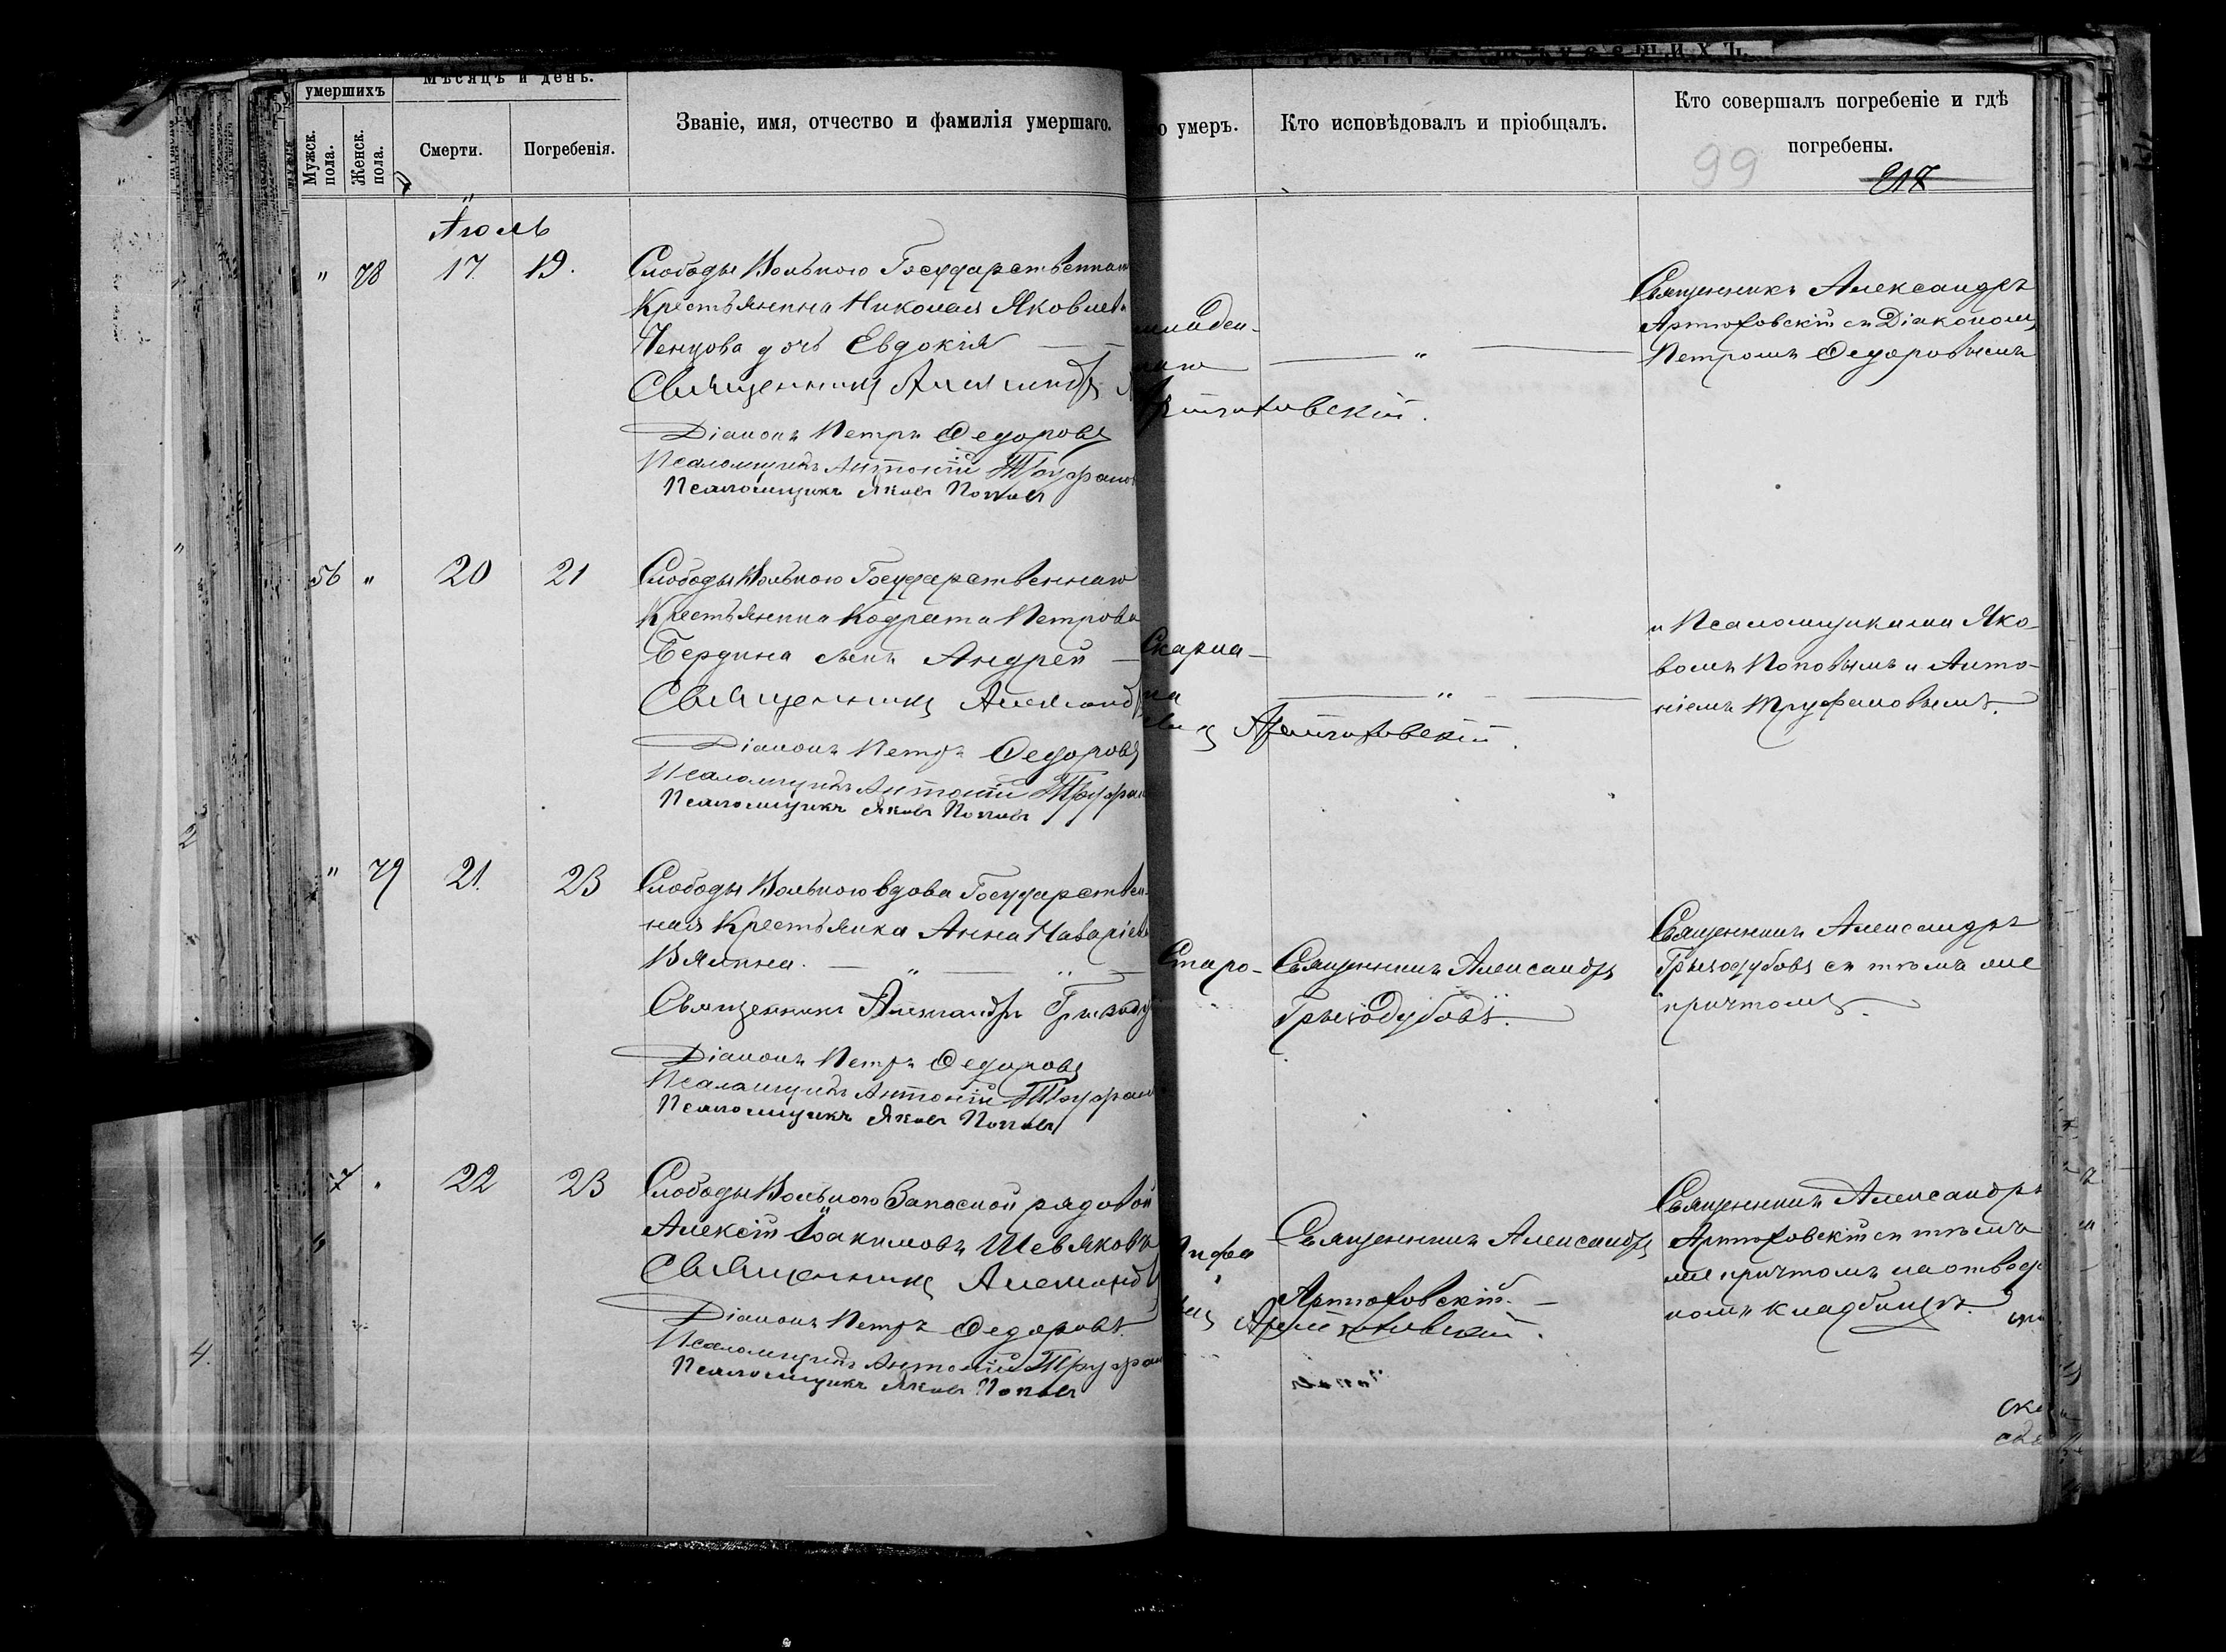 умершихъ
Мѣсяцъ и день.
Мужск. пола.
Женск. пола.
Смерти.
Погребенія.
Званіе, имя, отчество и фамилія умершаго.
о умеръ.
Кто исповѣдовалъ и пріобщалъ.
Кто совершалъ погребеніе и гдѣ
погребены.
99
217
Іюль
" 78 17. 19.
Слободы Вольного Государственнаго
Крестьянина Николая Яковлева
Ченцова дочь Евдокія
Священникъ Александръ Артюховскій.
Діаконъ Петръ Ѳедоровъ
Псаломщикъ Антоній Труфанов
Псаломщикъ Яковъ Поповъ
младен-
"
Священникъ Александръ
Артюховскій съ Діакономъ
Петромъ Ѳедоровымъ
56 " 20 21
Слободы Вольного Государственнаго
Крестьянина Кодрата Петрова
Бердина сынъ Андрей
Священникъ Александ
Артюховскій.
Діаконъ Петръ Ѳедоровъ
Псаломщикъ Антоній Труфан
Псаломщикъ Яковъ Поповъ
Скарла-
"
и Псаломщиками Яко-
вомъ Поповымъ и Анто-
ніемъ Труфановымъ.
" 79 21. 23
Слободы Вольного вдова Государствен-
ная Крестьянка Анна
Вялкна.
Священникъ Александръ
Діаконъ Петръ Ѳедоровъ
Псаломщикъ Антоній Труфан
Псаломщикъ Яковъ Поповъ
Старо-
Священникъ Александръ
Грызодубовъ.
Священникъ Александръ
Грызодубовъ съ тѣмъ же
причтомъ.
7 " 22 23
Слободы Вольного Запасной рядовой
Алексій Іоакимовъ Шевяковъ
Священникъ Александ
Артюховскій.
Діаконъ Петръ Ѳедоровъ.
Псаломщикъ Антоній Труфан
Псаломщикъ Яковъ Поповъ
Священникъ Александръ
Артюховскій.
Священникъ Александръ
Артюховскій съ тѣмъ
же причтомъ на отведе
номъ кладбищѣ.